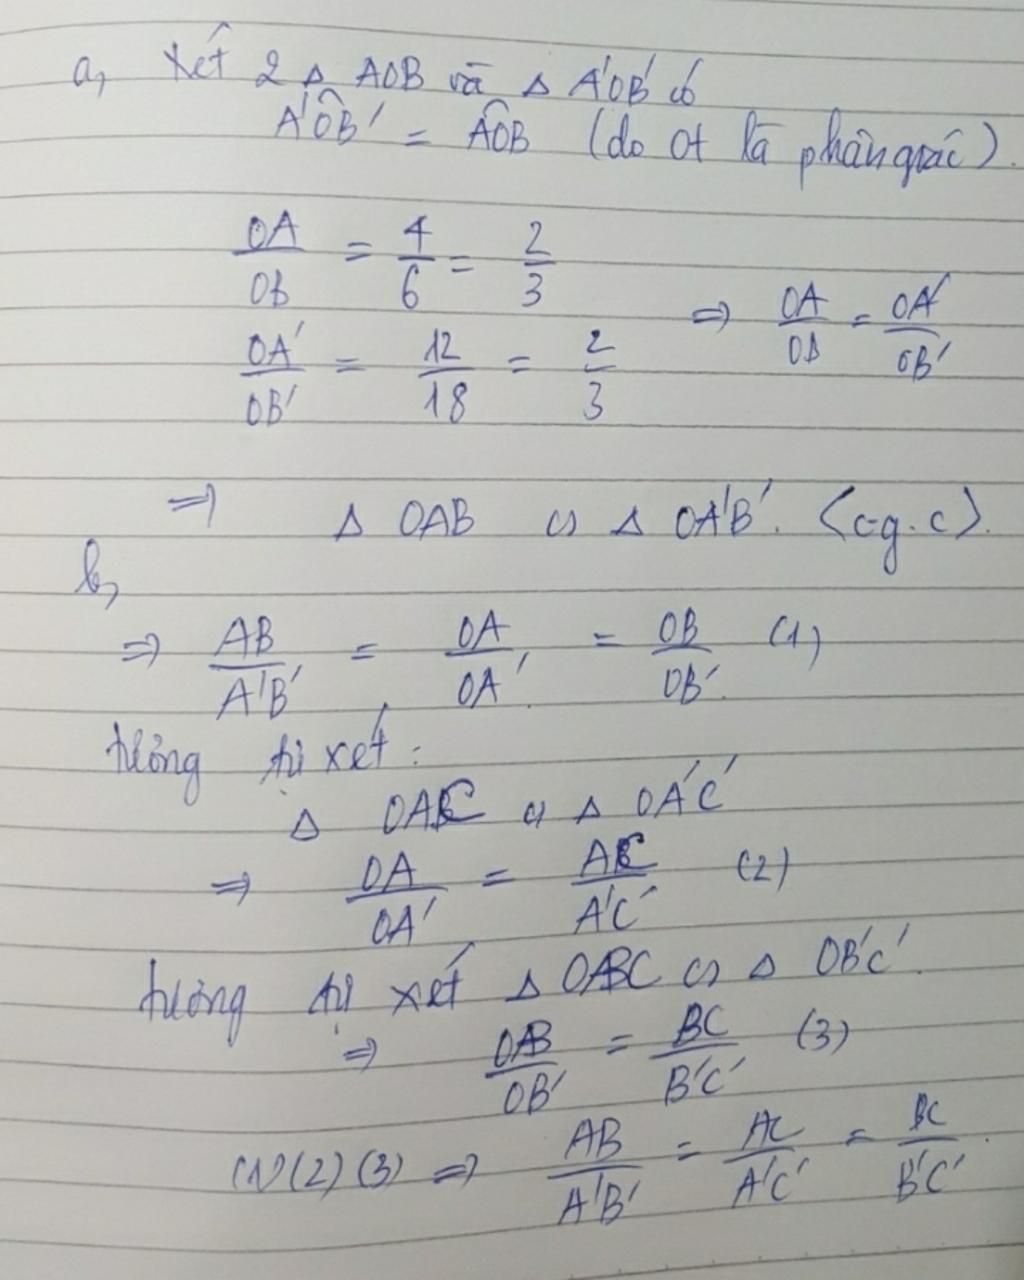 a, Xét 2 Δ AOB và Δ A'OB' có
A'ÔB' = AÔB (do Ot là phân giác).
OA/OB = 4/6 = 2/3
OA'/OB' = 12/18 = 2/3 => OA/OB = OA'/OB'
=> Δ OAB ∽ Δ OA'B'. (c-g.c).
b,
=> AB/A'B' = OA/OA' = OB/OB' (1)
tương tự xét:
Δ OAC ∽ Δ OA'C'
=> OA/OA' = AC/A'C' (2)
tương tự xét Δ OBC ∽ Δ OB'C'.
=> OB/OB' = BC/B'C' (3)
(1)(2)(3) => AB/A'B' = AC/A'C' = BC/B'C'.